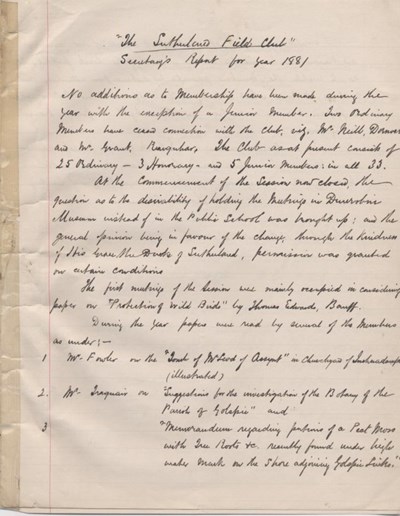 "The Sutherland Field Club"
Secretary's Report for Year 1881
No additions as to Membership have been made during the
year with the exception of a Junior Member. Two Ordinary
Members have ceased connection with the Club, viz, Mr Neill, Dornoch
and Mr Grant, The Club as at present consists of
25 Ordinary – 3 Honorary – and 5 Junior Members: in all 33.
At the Commencement of the Session now closed, the
question as to the desirability of holding the Meetings in Dunrobin
Museum instead of in the Public School was brought up; and the
general opinion being in favour of the change, through the kindness
of His Grace the Duke of Sutherland, permission was granted
on certain conditions
The first meetings of the Session were mainly occupied in considering
paper on "Protection of Wild Birds" by Thomas Edward, Banff.
During the Year papers were read by several of the Members
as under;–
1 Mr Fowler on the "Tomb of McLeod of Assynt" in
(illustrated)
2. Mr on "Suggestions for the investigation of the Botany of the
Parish of Golspie" and
3 "Memorandum regarding portions of a Peat Moss
with Tree Roots &c. recently found under high
water mark on the Shore adjoining Golspie Links."